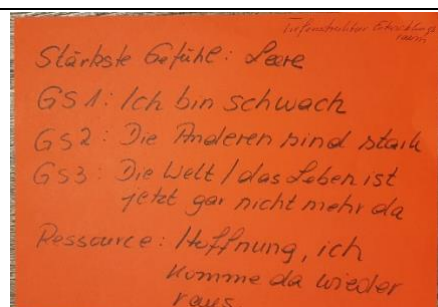 Tiefenstruktur Entwicklungs
raum
Stärkste Gefühl: Leere
GS1: Ich bin schwach
GS2: Die Anderen sind stark
GS3: Die Welt / das Leben ist
jetzt gar nicht mehr da
Ressource: Hoffnung, ich
komme da wieder
raus